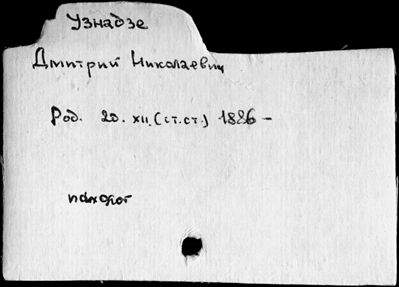 Узнадзе
Дмитрий Николаевич
Род. 20. XII. (ст. ст.) 1886 –
психолог